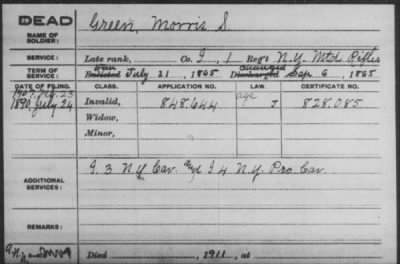 DEAD
NAME OF SOLDIER: Green, Morris S.
SERVICE: Late rank, Co. I, 1 Reg't N.Y. Mtd Rifles
TERM OF SERVICE: Enlisted July 21, 1865 Discharged Sep. 6, 1865
DATE OF FILING. CLASS. APPLICATION NO. CERTIFICATE NO.
1907. 23 age
1890, July 24 Invalid, 848.644 J 828.085
Widow,
Minor,
ADDITIONAL SERVICES: G. 3 N.Y. Cav. and I 4 N.Y. Pro. Cav.
REMARKS:
Died , 1911, at